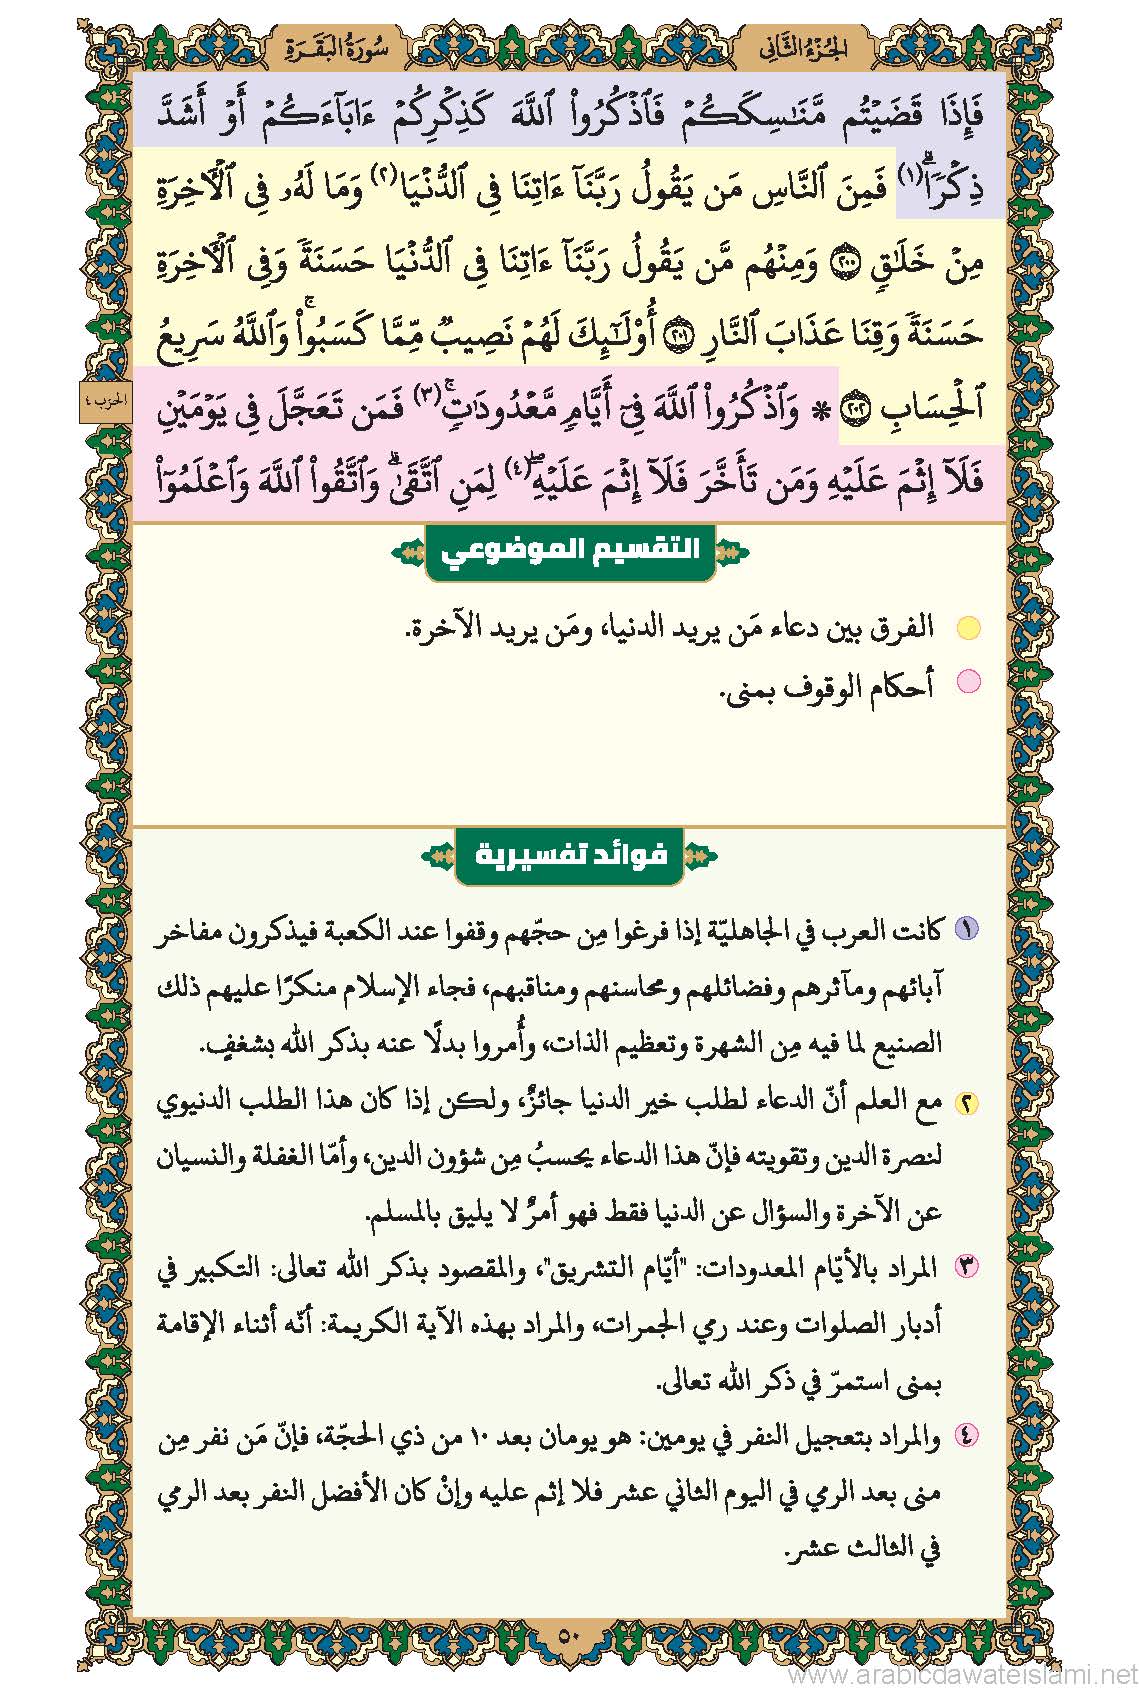 الجُزْءُ الثَّانِي
سُورَةُ البَقَرَةِ
فَإِذَا قَضَيْتُم مَّنَٰسِكَكُمْ فَٱذْكُرُوا۟ ٱللَّهَ كَذِكْرِكُمْ ءَابَآءَكُمْ أَوْ أَشَدَّ
ذِكْرًاۗ(١) فَمِنَ ٱلنَّاسِ مَن يَقُولُ رَبَّنَآ ءَاتِنَا فِى ٱلدُّنْيَا(٢) وَمَا لَهُۥ فِى ٱلْءَاخِرَةِ
مِنْ خَلَٰقٍ ٢٠٠ وَمِنْهُم مَّن يَقُولُ رَبَّنَآ ءَاتِنَا فِى ٱلدُّنْيَا حَسَنَةً وَفِى ٱلْءَاخِرَةِ
حَسَنَةً وَقِنَا عَذَابَ ٱلنَّارِ ٢٠١ أُو۟لَٰٓئِكَ لَهُمْ نَصِيبٌ مِّمَّا كَسَبُوا۟ۚ وَٱللَّهُ سَرِيعُ
ٱلْحِسَابِ ٢٠٢ * وَٱذْكُرُوا۟ ٱللَّهَ فِىٓ أَيَّامٍ مَّعْدُودَٰتٍۚ(٣) فَمَن تَعَجَّلَ فِى يَوْمَيْنِ
الحزب ٤
فَلَآ إِثْمَ عَلَيْهِ وَمَن تَأَخَّرَ فَلَآ إِثْمَ عَلَيْهِۖ(٤) لِمَنِ ٱتَّقَىٰۗ وَٱتَّقُوا۟ ٱللَّهَ وَٱعْلَمُوٓا۟
التقسيم الموضوعي
الفرق بين دعاء مَن يريد الدنيا، ومَن يريد الآخرة.
أحكام الوقوف بمنى.
فوائد تفسيرية
١ كانت العرب في الجاهليّة إذا فرغوا مِن حجّهم وقفوا عند الكعبة فيذكرون مفاخر
آبائهم ومآثرهم وفضائلهم ومحاسنهم ومناقبهم، فجاء الإسلام منكرًا عليهم ذلك
الصنيع لما فيه مِن الشهرة وتعظيم الذات، وأُمروا بدلًا عنه بذكر الله بشغفٍ.
٢ مع العلم أنّ الدعاء لطلب خير الدنيا جائزٌ، ولكن إذا كان هذا الطلب الدنيوي
لنصرة الدين وتقويته فإنّ هذا الدعاء يحسبُ مِن شؤون الدين، وأمّا الغفلة والنسيان
عن الآخرة والسؤال عن الدنيا فقط فهو أمرٌ لا يليق بالمسلم.
٣ المراد بالأيّام المعدودات: "أيّام التشريق"، والمقصود بذكر الله تعالى: التكبير في
أدبار الصلوات وعند رمي الجمرات، والمراد بهذه الآية الكريمة: أنّه أثناء الإقامة
بمنى استمرّ في ذكر الله تعالى.
٤ والمراد بتعجيل النفر في يومين: هو يومان بعد ١٠ من ذي الحجّة، فإنّ مَن نفر مِن
منى بعد الرمي في اليوم الثاني عشر فلا إثم عليه وإنْ كان الأفضل النفر بعد الرمي
في الثالث عشر.
٥٠
www.arabicdawateislami.net